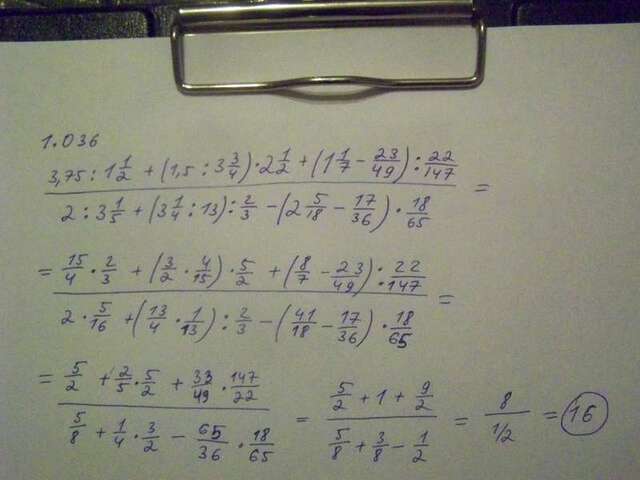 1.036
3,75 : 1 1/2 + (1,5 : 3 3/4) · 2 1/2 + (1 1/7 − 23/49) : 22/147
2 : 3 1/5 + (3 1/4 : 13) : 2/3 − (2 5/18 − 17/36) · 18/65 =
= 15/4 · 2/3 + (3/2 · 4/15) · 5/2 + (8/7 − 23/49) : 22/147
2 · 5/16 + (13/4 · 1/13) : 2/3 − (41/18 − 17/36) · 18/65 =
= 5/2 + 2/5 · 5/2 + 33/49 · 147/22
5/8 + 1/4 · 3/2 − 65/36 · 18/65
= 5/2 + 1 + 9/2
5/8 + 3/8 − 1/2
= 8
1/2
= 16